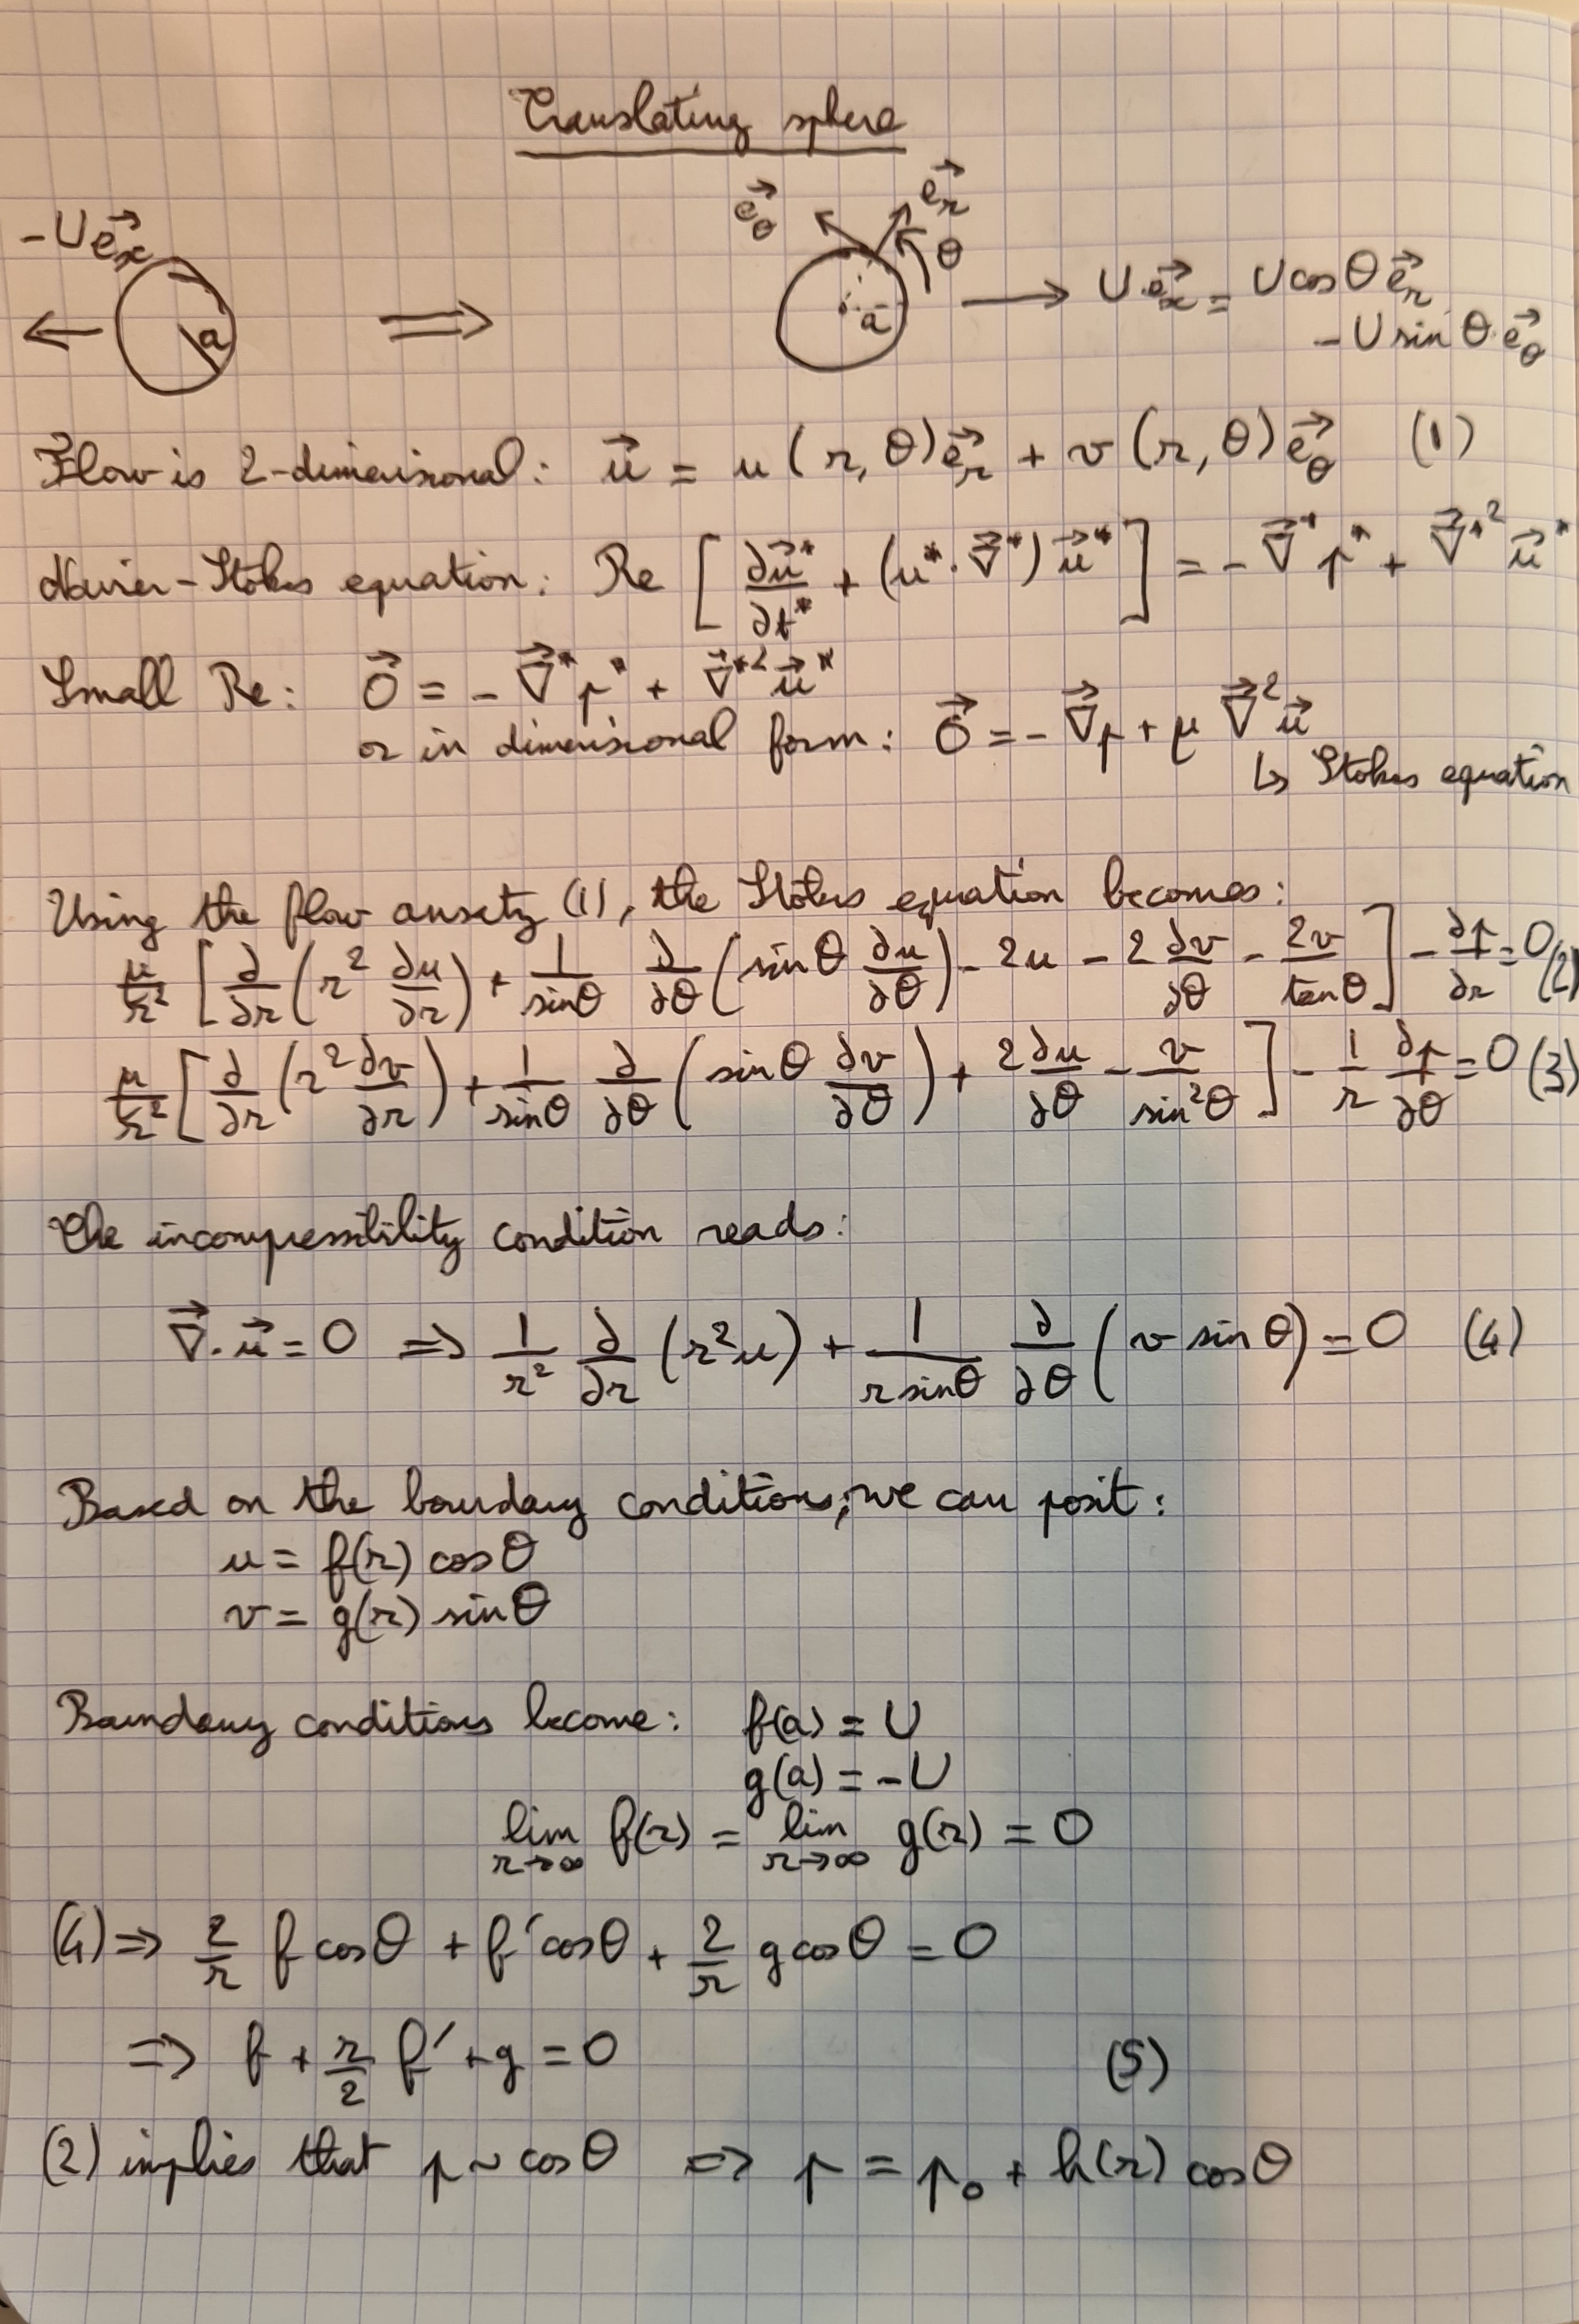 Translating sphere
-U e⃗ₓ
a
⟹
e⃗_θ
e⃗_r
θ
a
→ U e⃗ₓ = U cos θ e⃗_r
- U sin θ e⃗_θ
Flow is 2-dimensional: u⃗ = u(r, θ) e⃗_r + v(r, θ) e⃗_θ (1)
Navier-Stokes equation: Re [ ∂u⃗*/∂t* + (u⃗*·∇⃗*) u⃗* ] = - ∇⃗* p* + ∇⃗*² u⃗*
Small Re: 0⃗ = - ∇⃗* p* + ∇⃗*² u⃗*
or in dimensional form: 0⃗ = - ∇⃗p + μ ∇⃗² u⃗
↳ Stokes equation
Using the flow ansatz (1), the Stokes equation becomes:
μ/r² [ ∂/∂r (r² ∂u/∂r) + 1/sinθ ∂/∂θ (sinθ ∂u/∂θ) - 2u - 2 ∂v/∂θ - 2v/tanθ ] - ∂p/∂r = 0 (2)
μ/r² [ ∂/∂r (r² ∂v/∂r) + 1/sinθ ∂/∂θ (sinθ ∂v/∂θ) + 2 ∂u/∂θ - v/sin²θ ] - 1/r ∂p/∂θ = 0 (3)
The incompressibility condition reads:
∇⃗·u⃗ = 0 ⇒ 1/r² ∂/∂r (r²u) + 1/(r sinθ) ∂/∂θ (v sin θ) = 0 (4)
Based on the boundary conditions, we can posit:
u = f(r) cos θ
v = g(r) sin θ
Boundary conditions become: f(a) = U
g(a) = -U
lim_{r→∞} f(r) = lim_{r→∞} g(r) = 0
(4) ⇒ 2/r f cosθ + f' cosθ + 2/r g cosθ = 0
⇒ f + r/2 f' + g = 0 (5)
(2) implies that p ~ cos θ ⇒ p = p₀ + h(r) cos θ